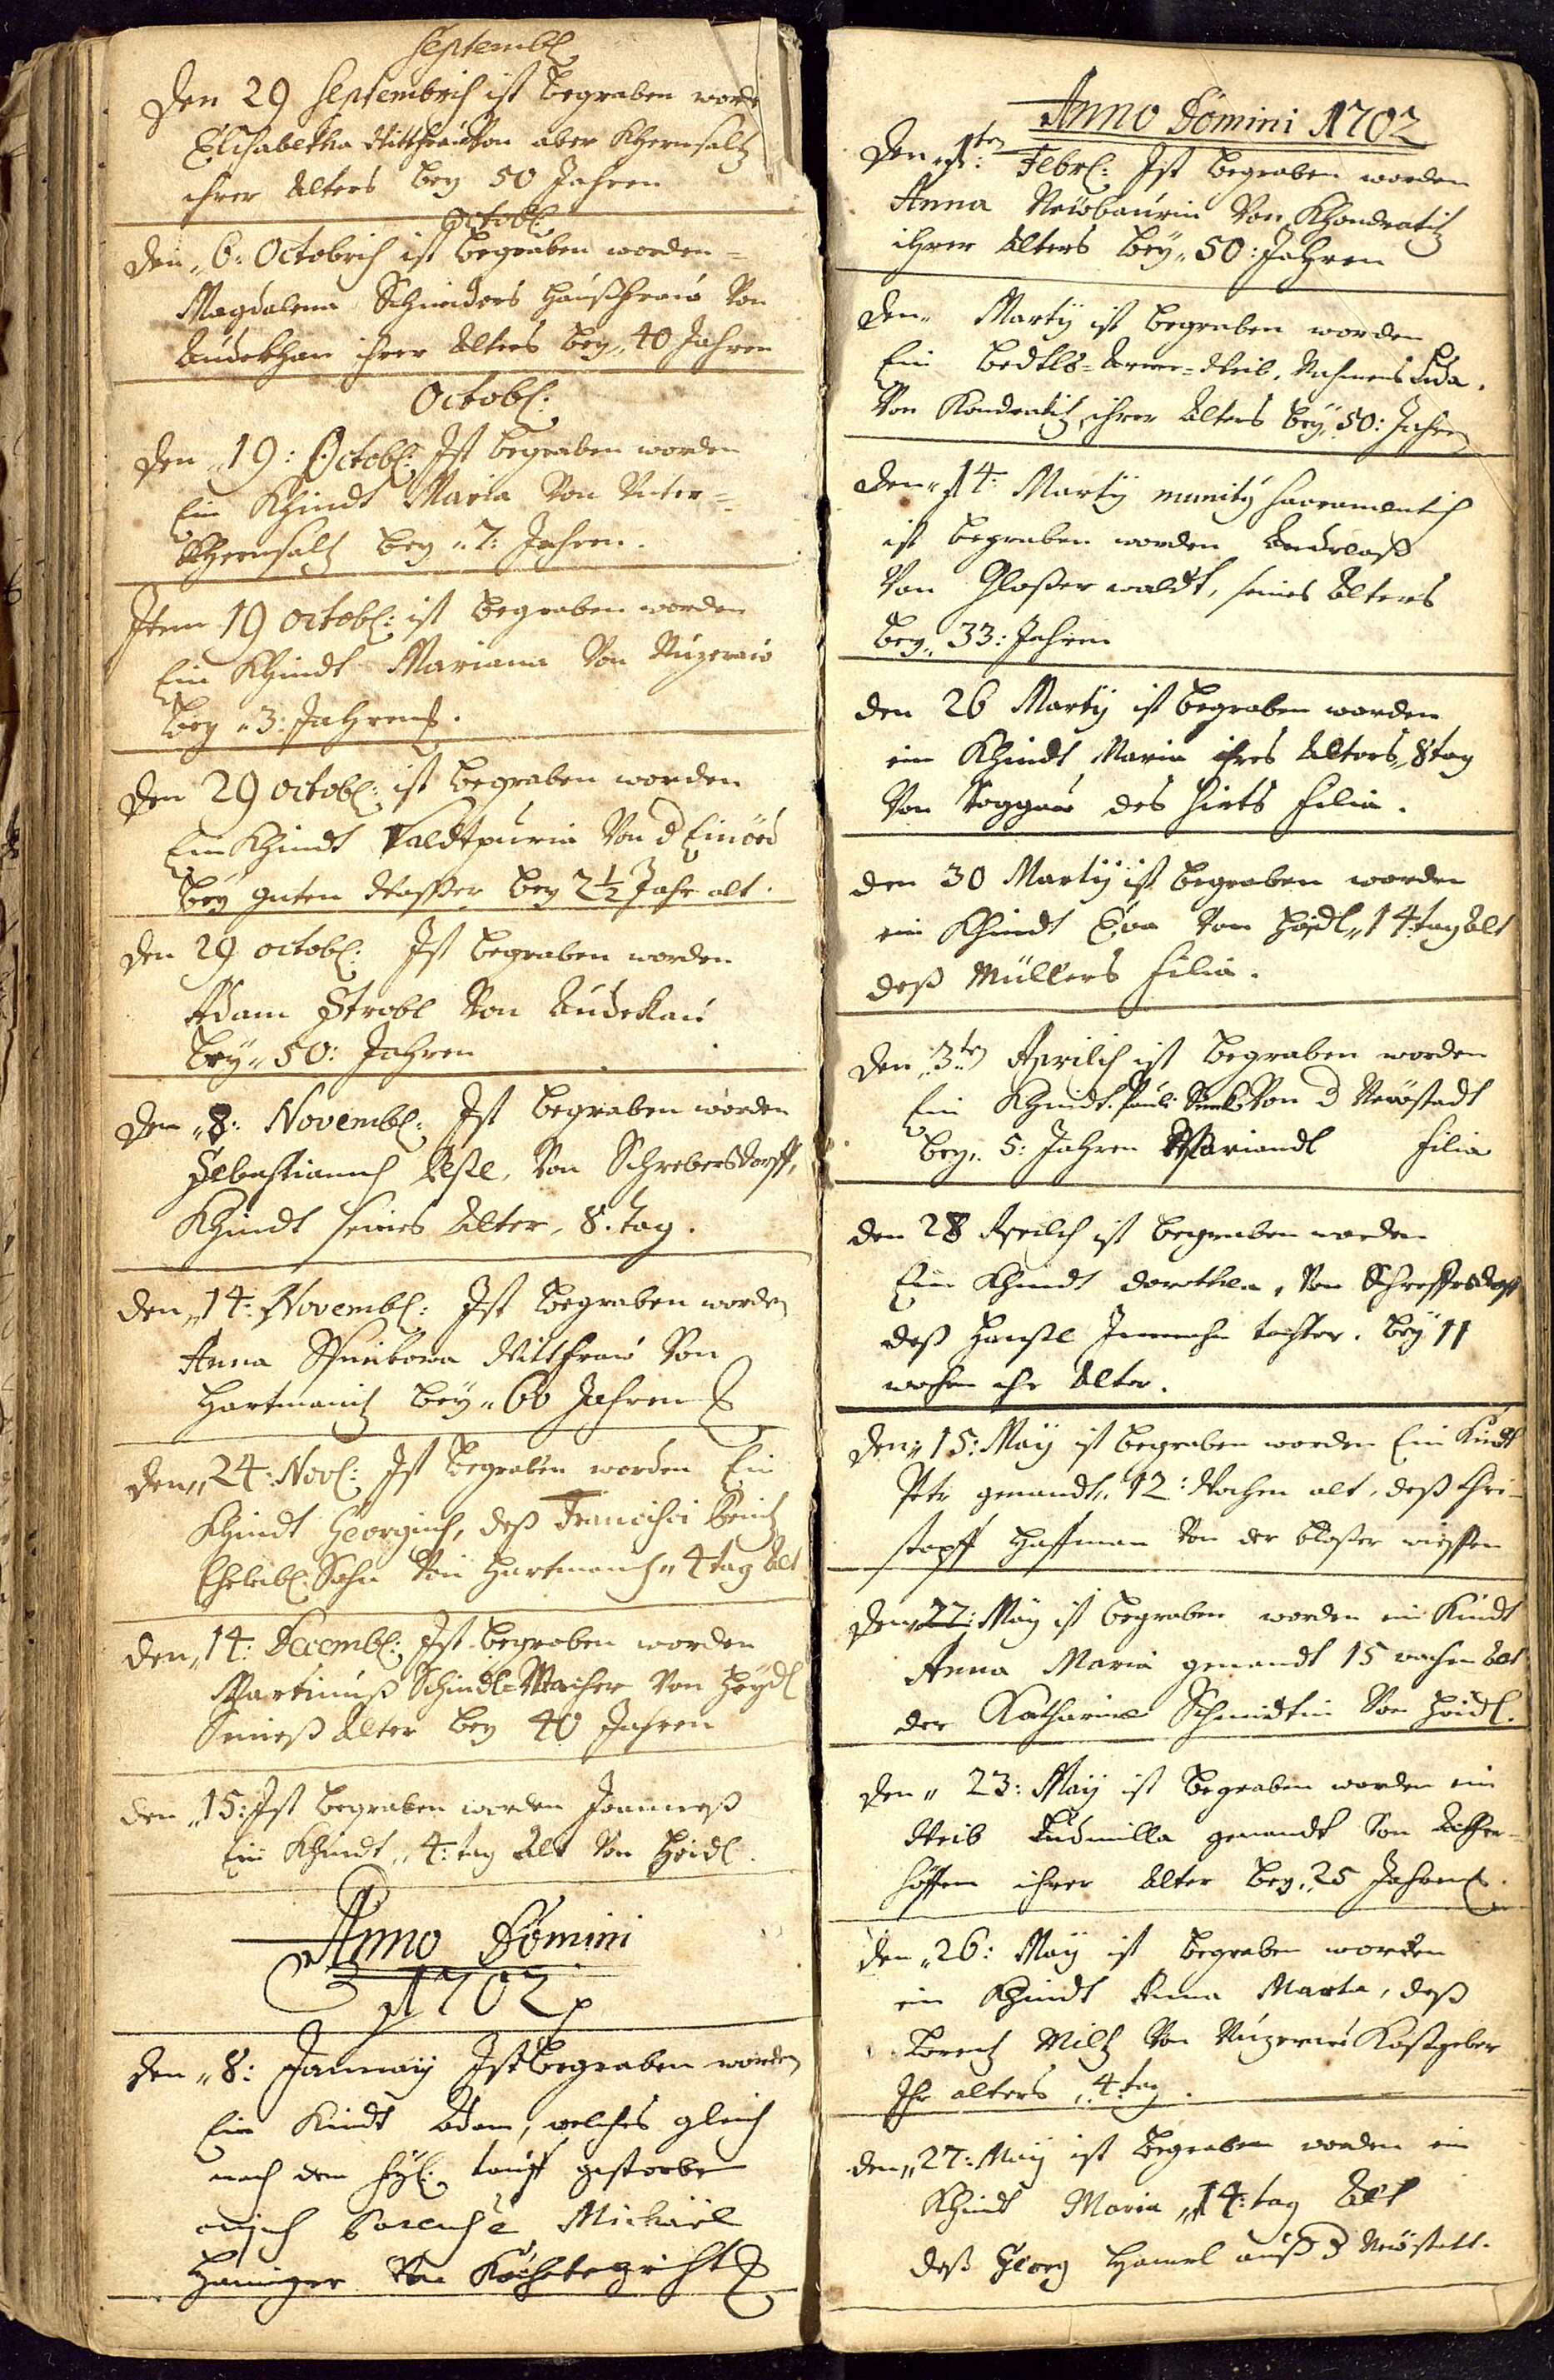 Septembr:
Den 29 Septembris ist begraben worden
Elisabetha Wittfrau von ober Khernsaltz
ihrer Alters bey 50 Jahren
Octobr:
den „ 6: Octobris ist begraben worden =
Magdalena Schneiders Haußfrau Von
ihrer Alters bey „ 40 Jahren
Octobr:
den „ 19: Octobr: Ist begraben worden
Ein Khindt Maria Von Unter =
Khernsaltz bey „ 7: Jahren.
Item 19 octobr: ist begraben worden
Ein Khindt Mariana Von Nuzerau
bey „ 3: Jahren.
den 29 octobr: ist begraben worden
Ein Khindt Valdtpuria Von d Einöed
bey guten Wasser bey 2½ Jahr alt.
den 29 octobr: Ist begraben worden
Adam Strobl Von
bey „ 50: Jahren
den „ 8: Novembr: Ist begraben worden
Sebastianus Von Schrebersdorff,
Khindt seines Alter, 8. tag.
den „ 14: Novembr: Ist begraben worden
Anna Wittfrau Von
Hartmanitz bey „ 60 Jahren
den „ 24: Novr: Ist begraben worden Ein
Khindt Georgius, deß Francisci
Ehelibl: Sohn Von Hartmanitz „ 4 tag Alt
den „ 14: Decembr: Ist begraben worden
Martinuß Schindl=Macher Von Heydl
Seineß Alter bey 40 Jahren
den „ 15: Ist begraben worden Joanneß
Ein Khindt „ 4: tag Alt Von Heidl.
Anno Domini
1702
den „ 8: January Ist begraben worden
Ein Kindt Adam, welches gleich
nach dem hyl: tauff gestorben
Michäel
Haniger Von
Anno Domini 1702
den „ 1ten: Febr: Ist begraben worden
Anna Neubaurin Von Khondratitz
ihrer Alters bey „ 50: Jahren
den „ Martij ist begraben worden
Ein Weib, Nahmens Lida.
Von Kondratitz, ihrer Alters bey „ 50: Jahren
den „ 14: Martij sacramentis
ist begraben worden Andreaß
Von Gloßer waldt, seines Alters
bey „ 33: Jahren
den 26 Martij ist begraben worden
ein Khindt Maria ihres Alters „ 8 tag
Von des Hirts filia.
den 30 Martij ist begraben worden
ein Khindt Eva Von Heydl „ 14 tag Alt
deß Müllers filia.
den „ 3ten Aprilis ist begraben worden
Ein Khindt. Pauli Von d Neustadt
bey „ 5: Jahren Mariandl filia
den 28 Aprilis ist begraben worden
Ein Khindt dorothea, Von
deß tochter. bey 11
wochen ihr Alter.
den „ 15: May ist begraben worden Ein Kindt
Petr genandt „ 12: Wochen alt, deß Chri-
stopff Hoffman Von der
den „ 22: May ist begraben worden ein Kindt
Anna Maria genandt 15 wochen Alt
der Katharina Schmidtin Von Heidl.
den „ 23: May ist begraben worden ein
Weib Ludmilla genandt Von
höffen ihrer Alter bey „ 25 Jahren.
den „ 26: May ist begraben worden
ein Khindt Anna Marta, deß
Lorentz Miltz Von Nuzerau Kostgeber
Ihr alters „ 4: tag.
den „ 27: May ist begraben worden ein
Khindt Maria „ 14: tag Alt
deß Georg auß d Neustatt.